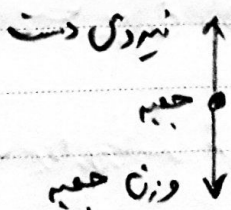 نیروی دست
جعبه
وزن جعبه